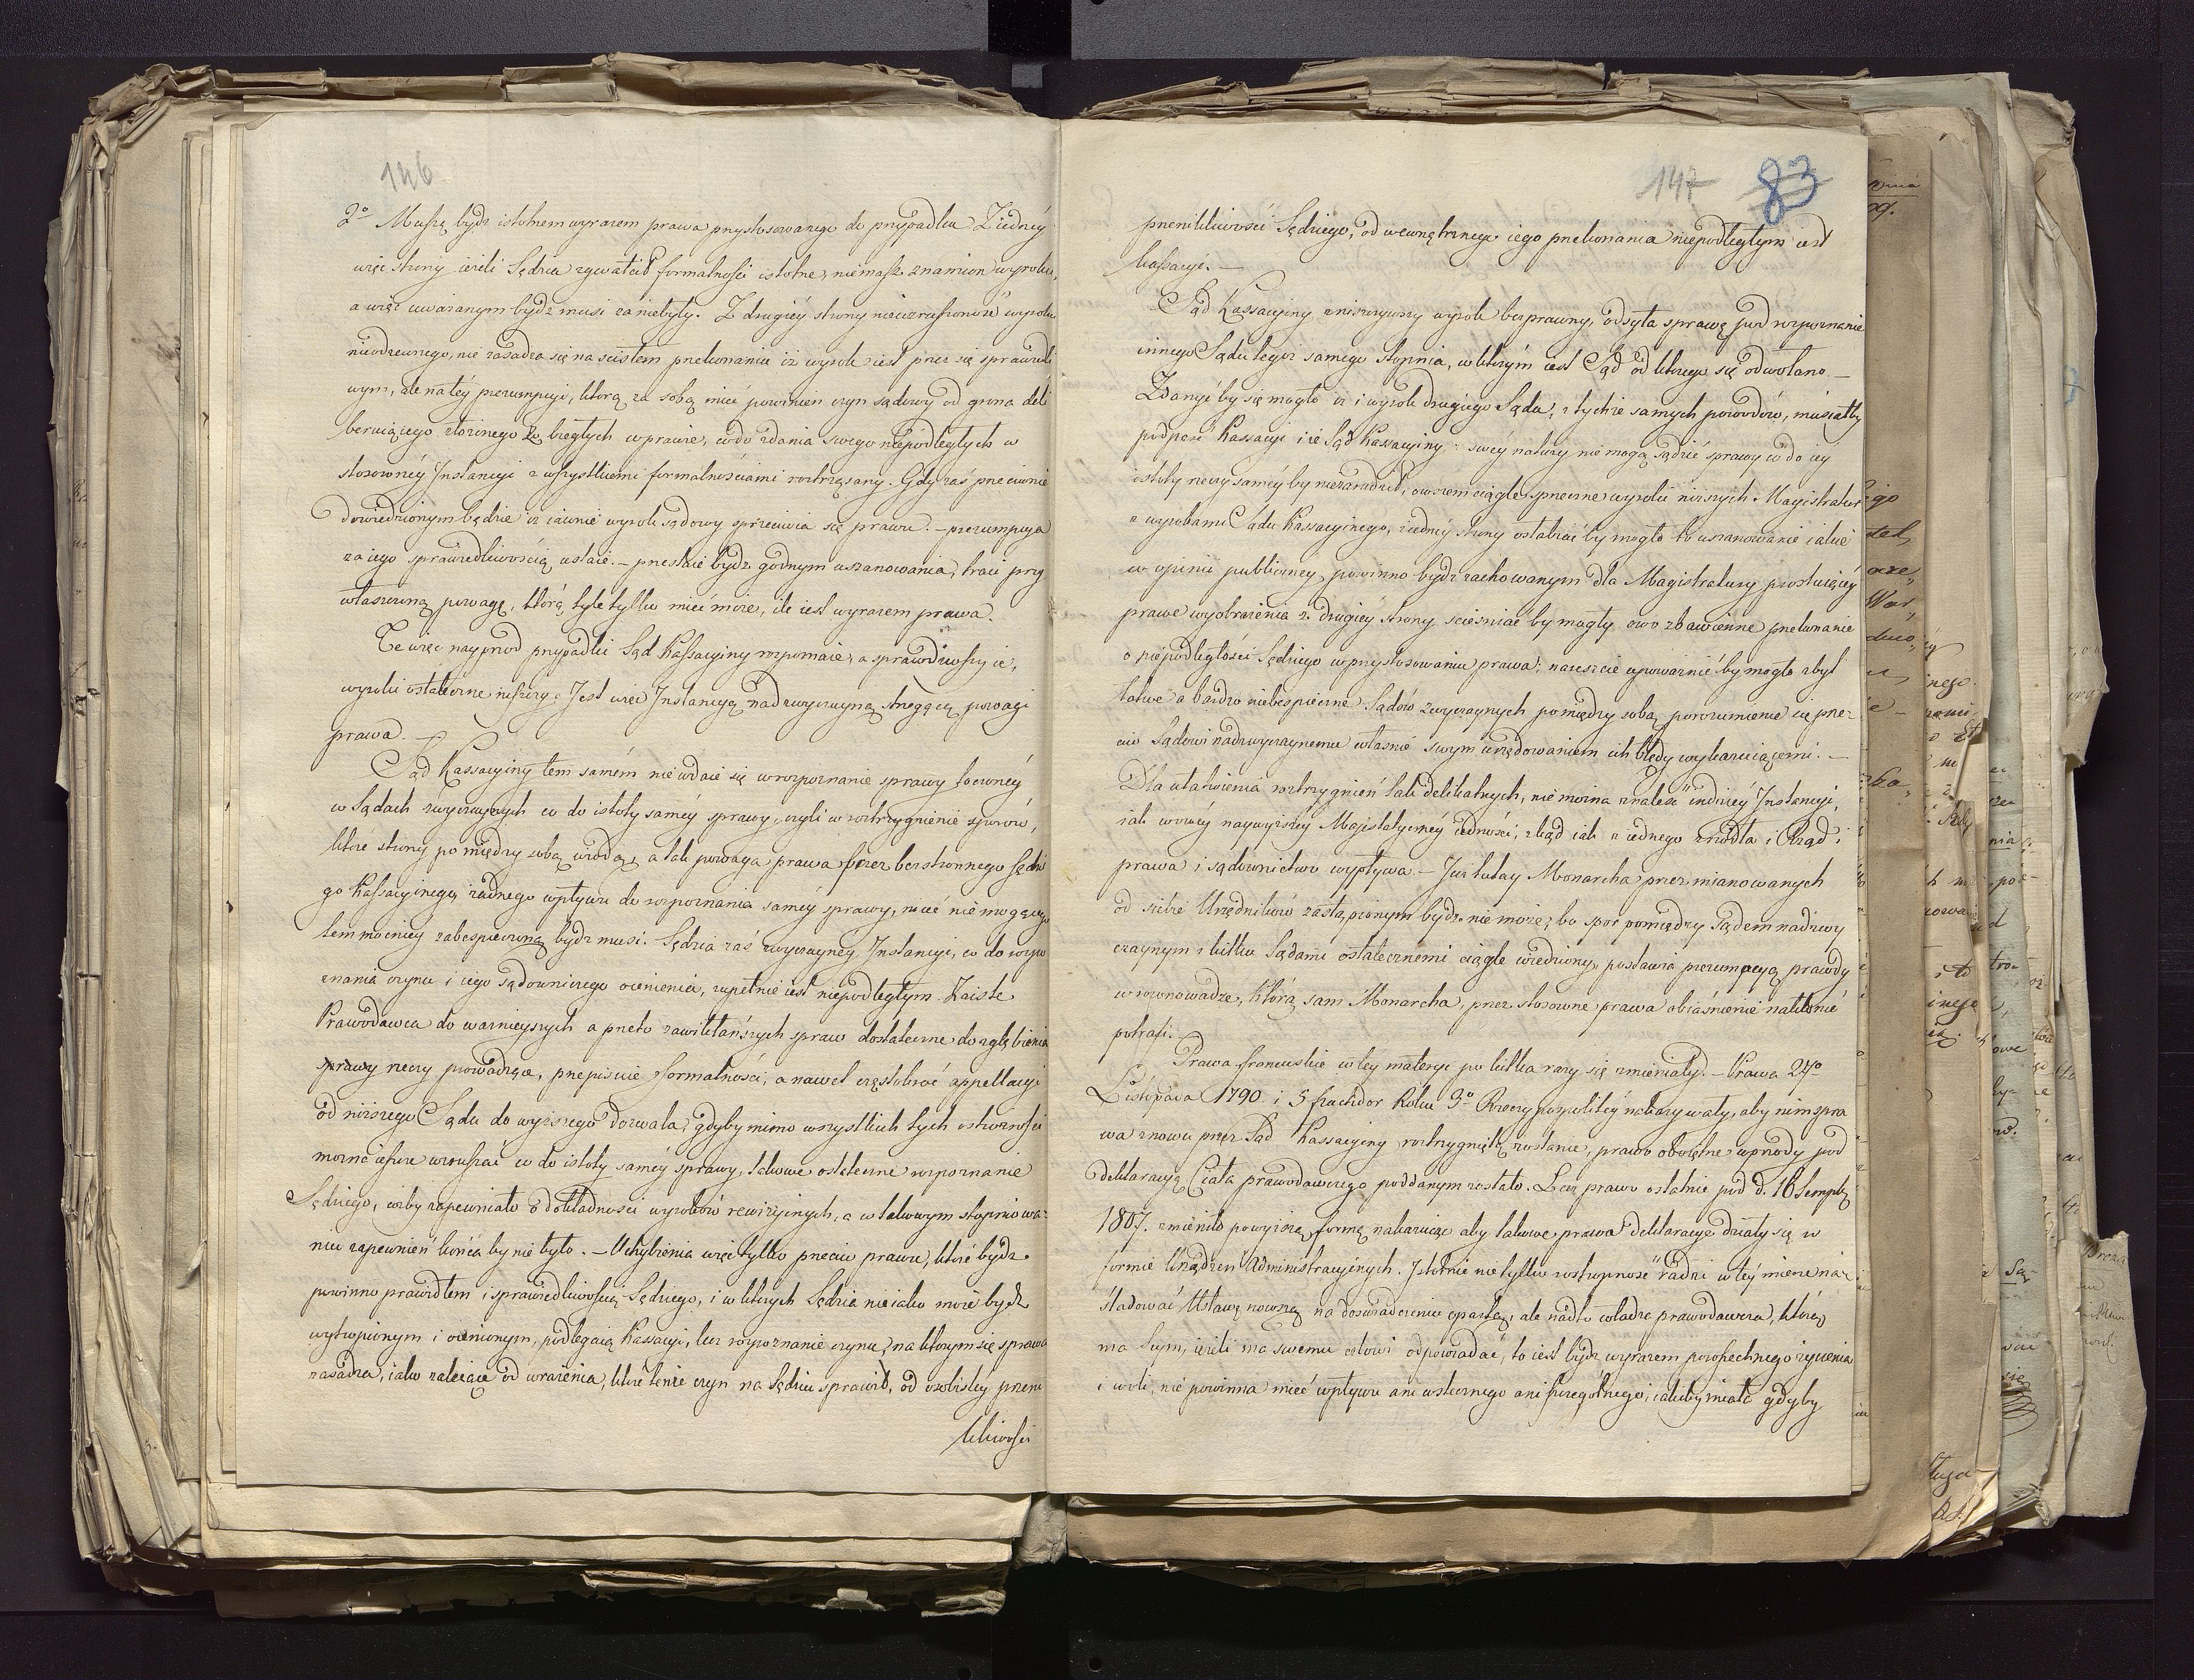 146
2o Muszą bydz istotnem wyrazem prawa przystosowanego do przypadku. Z iednéy
więc strony ieżeli Sędzia zgwałcił formalności istotne, niemasz znamion wyroku,
a więc uważanym bydź musi za niebyły. Z drugiéy strony niewzruszoność wyroku
nieodzownego, nie zasadza się na ścisłem przekonaniu iż wyrok iest przez się sprawiedli
wym, ale na téy prezumpcyi, którą za sobą mieć powinien czyn sądowy od grona deli
beruiącego złożonego z biegłych w prawie, co do zdania swego niepodległych w
stosownéy Instancyi z wszystkiemi formalnościami roztrząsany. Gdy zaś przeciwnie
dowiedzionym będzie iż iawnie wyrok sądowy sprzeciwia się prawu. – prezumpcya
za iego sprawiedliwością ustaie. – przestaie bydz godnym uszanowania, traci przy
właszczoną powagę, którą tyle tylko mieć może, ile iest wyrazem prawa.
Te więc nayprzod przypadki Sąd Kassacyiny rozpoznaie, a sprawdziwszy ie,
wyroki ostateczne niszczy. Jest więc Instancyą nadzwyczayną strzegącą powagi
prawa. –
Sąd Kassacyiny tem samém nie wdaie się w rozpoznanie sprawy toczonéy
w Sądach zwyczaynych co do istoty saméy sprawy, czyli w roztrzygnienie sporów,
które strony pomiędzy sobą wiodą, a tak powaga prawa przez bezstronnego Sędzie
go Kassacyinego, żadnego wpływu do rozpoznania saméy sprawy, mieć nie mogącego
tem mocniey zabespieczoną bydz musi. Sędzia zaś zwyczayney Instancyi, co do rozpo
znania czynu i iego sądowniczego ocenienia, zupełnie iest niepodległym. Zaiste
Prawodawca do ważnieyszych a przeto zawikłańszych spraw dostateczne do zgłębienia
prawdy rzeczy prowadzące, przepisuie formalności, a nawet częstokroć appellacyi
od niższego Sądu do wyższego dozwala, gdyby mimo wszystkich tych ostrożności
można ieszcze wzruszać co do istoty saméy sprawy, takowe ostateczne rozpoznanie
Sędziego, cożby zapewniało o dokładności wyroków rewizyinych, a w takowym stopniowa-
niu zapewnień końca by nie było. – Uchybienia więc tylko przeciw prawu, które bydz
powinno prawidłem i sprawiedliwością Sędziego, i w których Sędzia nieiako może bydz
wytropionym i ocenionym, podlegaią Kassacyi, lecz rozpoznanie czynu, na którym się sprawa
zasadza, iako zależące od wrażenia, które tenże czyn na Sędziu sprawił, od osobistéy przeni
kliwości
147 83
przenikliwości Sędziego, od wewnętrznego iego przekonania niepodległym iest
kassacyi. –
Sąd Kassacyiny zniszczywszy wyrok bezprawny, odsyła sprawę pod rozpoznanie
innego Sądu tegoż samego stopnia, w którym iest Sąd od którego się odwołano. –
Zdarzyć by się mogło iż i wyrok drugiego Sądu, z tychże samych powodów, musiałby
podpaść Kassacyi i że Sąd Kassacyiny z swéy natury nie mogąc sądzić sprawy co do iéy
istoty rzeczy saméy by niezaradził, owszem ciągle sprzeczne wyroki niższych Magistratur
z wyrokami Sądu Kassacyinego, z iednéy strony osłabiać by mogło to uszanowanie iakie
w opinii publicznéy, powinno bydz zachowanym dla Magistratury prostuiącéy
prawe wyobrażenia z drugiéy strony ścieśniać by mogły owo zbawienne przekonanie
o niepodległości Sędziego w przystosowaniu prawa; nareszcie upoważnić by mogło zbyt
łatwe a bardzo niebespieczne Sądów zwyczaynych pomiędzy sobą porozumienie się prze-
ciw Sądowi nadzwyczaynemu właśnie swym urzędowaniem ich błędy wykazuiącemi. –
Dla ułatwienia roztrzygnień tak delikatnych, nie można znaleść indziéy Instancyi,
iak w owéy naywyższéy Majestatycznéy iedności, zkąd iak z iednego źrzódła i Rząd i
prawa i sądownictwo wypływa. – Już tutay Monarcha przez mianowanych
od siebie Urzędników zastąpionym bydz nie może; bo spor pomiędzy Sądem nadzwy
czaynym i kilku Sądami ostatecznemi ciągle wiedziony, postawia prezumpcyą prawdy
w równowadze, którą sam Monarcha, przez stosowne prawa obiaśnienie nakłonić
potrafi.
Prawa francuskie w téy materyi po kilka razy się zmieniały. – Prawa 27o
Listopada 1790 i 5 fructidor Roku 3o Rzeczypospolitéy nakazywały, aby nim spra
wa znowu przez Sąd Kassacyiny roztrzygniętą zostanie, prawo obojętne wprzody pod
deklaracyą Ciała prawodawczego poddanym zostało. Lecz prawo ostatnie pod d. 16 Septemb
1807. zmieniło powyższą formę nakazuiąc aby takowe prawa deklaracye działy się w
formie Urządzeń Administracyinych. Istotnie nie tylko roztropność radzi w téy mierze na-
śladować Ustawę nowszą na doświadczeniu opartą, ale nadto władza prawodawcza, którą
ma Seym, ieżeli ma swemu celowi odpowiadać, to iest bydz wyrazem powszechnego życzenia
i woli, nie powinna mieć wpływu ani wstecznego ani szczególnego, iakiby miała gdyby